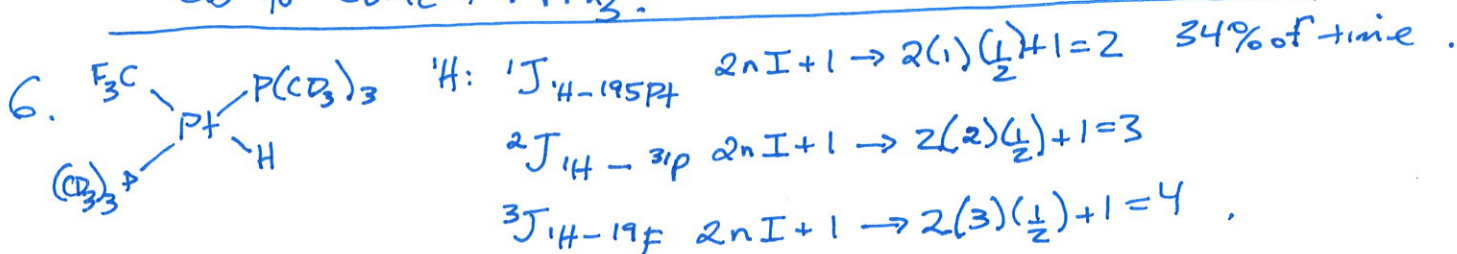 6. F₃C P(CD₃)₃ ¹H: ¹J ¹H-195Pt 2nI+1 → 2(1)(1/2)+1=2 34% of time.
Pt
H ²J ¹H-31P 2nI+1 → 2(2)(1/2)+1=3
(CD₃)₃P
³J ¹H-19F 2nI+1 → 2(3)(1/2)+1=4.